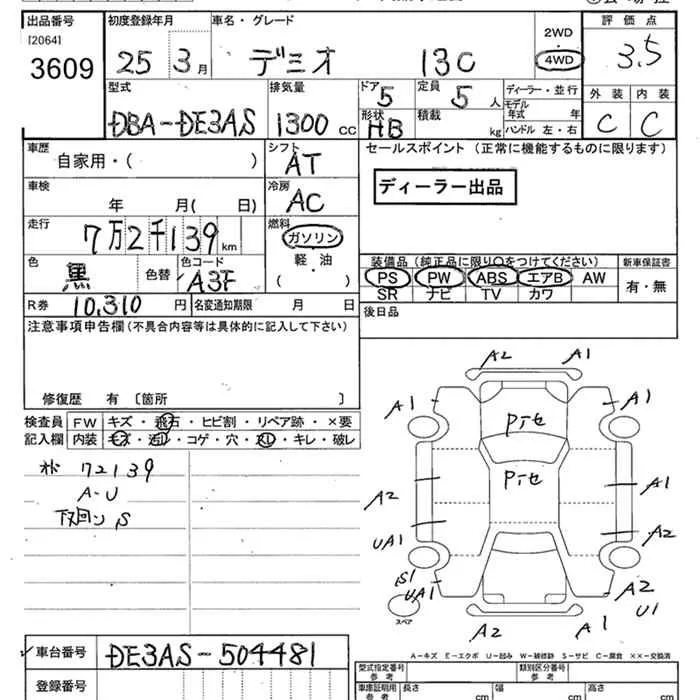 出品番号 初度登録年月 車名・グレード 2WD 評価点
[2064]
3609 25 3月 デミオ 13C 4WD 3.5
型式 排気量 ドア 定員 ディーラー・並行 外装 内装
DBA-DE3AS 1300 CC 5 5 人 モデル年式 年 C C
形状 HB 積載 kg ハンドル 左・右
車歴 シフト セールスポイント (正常に機能するものに限ります)
自家用・( ) AT
車検 冷房 ディーラー出品
年 月( 日) AC
走行 燃料
7万2千139km ガソリン
色 色替 色コード 軽油 装備品 (純正品に限り〇をつけてください) 新車保証書
黒 A3F ( ) PS PW ABS エアB AW 有・無
R券 10,310 円 名変通知期限 月 日 SR ナビ TV カワ
注意事項申告欄 (不具合内容等は具体的に記入して下さい) 後日品
修復歴 有 〔箇所 〕
検査員 FW キズ・飛石・ヒビ割・リペア跡・×要
記入欄 内装 キズ・汚レ・コゲ・穴・スレ・キレ・破レ
72139
A-U
下回り S
A2 A1
A1 A1
Pイセ
Pイセ
A2 A1
UA1 A2
S1
UA1 A2
U1
スペア
A2 A1
A-キズ E-エクボ U-凹み W-補修跡 S-サビ C-腐食 ××-交換済
車台番号 DE3AS-504481 型式指定番号 類別区分番号
参考 参考
登録番号 車庫証明用 長さ 幅 高さ
参考 cm cm cm